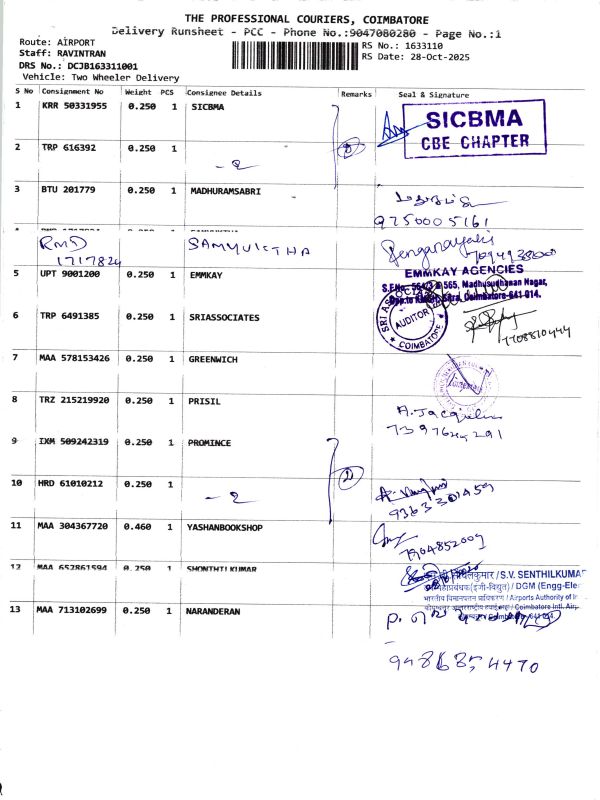 THE PROFESSIONAL COURIERS, COIMBATORE
Delivery Runsheet - PCC - Phone No.:9047080280 - Page No.:1
Route: AIRPORT
RS No.: 1633110
Staff: RAVINTRAN
RS Date: 28-Oct-2025
DRS No.: DCJB163311001
Vehicle: Two Wheeler Delivery
S No Consignment No Weight PCS Consignee Details Remarks Seal & Signature
1 KRR 50331955 0.250 1 SICBMA
SICBMA
CBE CHAPTER
2 TRP 616392 0.250 1
- 2
2
3 BTU 201779 0.250 1 MADHURAMSABRI
9750005161
RMD SAMYUKTHA
1717824
5 UPT 9001200 0.250 1 EMMKAY
EMMKAY AGENCIES
565, Madhusudhanan Nagar,
Coimbatore-641 014.
6 TRP 6491385 0.250 1 SRIASSOCIATES
SRI
AUDITOR
COIMBATORE
7708810444
7 MAA 578153426 0.250 1 GREENWICH
8 TRZ 215219920 0.250 1 PRISIL
9 IXM 509242319 0.250 1 PROMINCE
10 HRD 61010212 0.250 1
- 2
2
11 MAA 304367720 0.460 1 YASHANBOOKSHOP
7904852009
12 MAA 652861594 0.250 1 SHONTHILKUMAR
/ S.V. SENTHILKUMAR
/ DGM (Engg-Ele
भारतीय विमानपत्तन प्राधिकरण / Airports Authority of In
Coimbatore Intl. Air
13 MAA 713102699 0.250 1 NARANDERAN